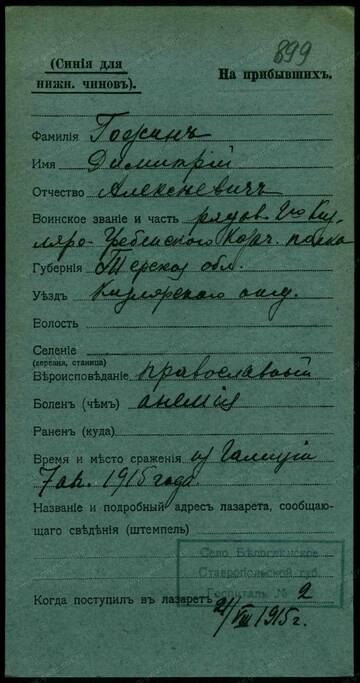 899
(Синія для
нижн. чиновъ).
На прибывшихъ.
Фамилія Годжинъ
Имя Димитрій
Отчество Алексѣевичъ
Воинское званіе и часть рядов. 1го Киз
ляро-Гребенского полка
Губернія Терская обл.
Уѣздъ Кизлярского
Волость
Селеніе
(деревня, станица)
Вѣроисповѣданіе православный
Боленъ (чѣмъ) анемія
Раненъ (куда)
Время и мѣсто сраженія Галиціи
1915 года.
Названіе и подробный адресъ лазарета, сообщаю-
щаго свѣдѣнія (штемпель)
Село Бѣлоглинское
Ставропольской губ.
Госпиталь № 2
Когда поступилъ въ лазаретъ 21/VIII 1915 г.